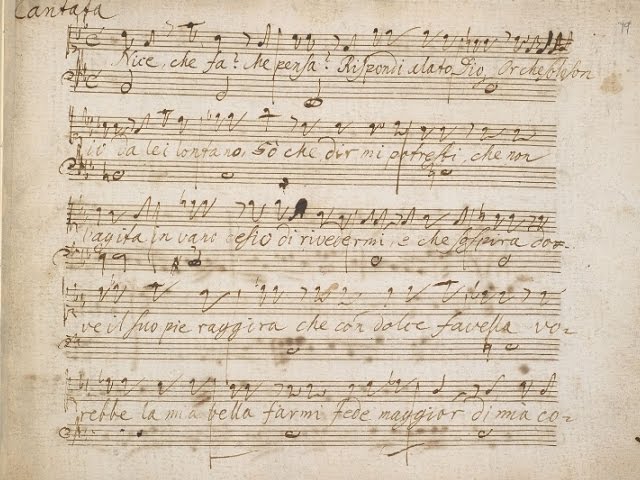 Cantata
Nice, che fa? che pensa? Rispondi alato Dio, Or che
da lei lontano, Sò che dir mi potresti, che non
l'agita in vano desio di rivedermi, e che sospira do=
ve il suo pie raggira che con dolce favella vo-
rebbe la mia bella farmi fede maggior di mia co-